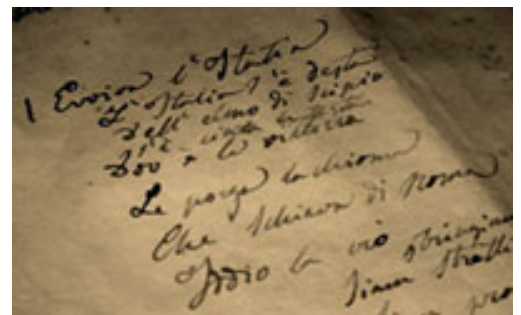 1 Evviva l'Italia
L'Italia s'è desta
Dell'elmo di Scipio
S'è cinta la testa
Dov'è la vittoria
Le porga la chioma
Che schiava di Roma
Iddio la creò
Siam